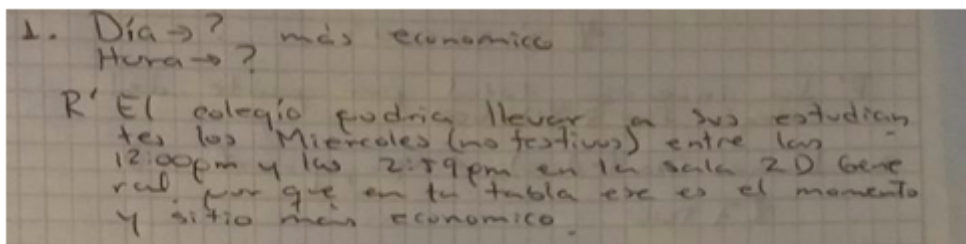 1. Día → ? más economico
Hora → ?
R' El colegio podria llevar a sus estudian
tes los Miercoles (no festivos) entre las
12:00pm y las 2:59pm en la sala 2D Gene
ral, por que en la tabla ese es el momento
y sitio más economico.